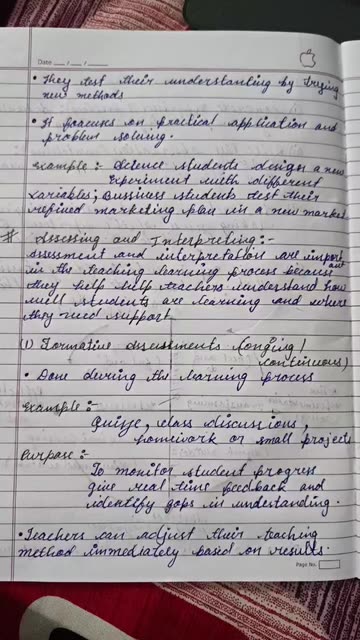 Date ___/___/___
• They test their understanding by trying
new methods
• It foacuses on practical application and
problem solving.
Example :- Science students design a new
Experiment with different
variables; Business students test their
refined marketing plan in a new market
# Assessing and Interpreting:-
assessment and interpretation are important
in the teaching learning process because
they help help teachers understand how
well students are learning and where
they need support.
(1) Formative assessments (onging /
continuous)
• Done during the learning process
Example :-
Quize, class discussions,
homework or small project
Purpose :-
To monitor student progress
give real time feedback and
identify gaps in understanding.
• Teachers can adjust their teaching
method immediately based on results.
Page No.